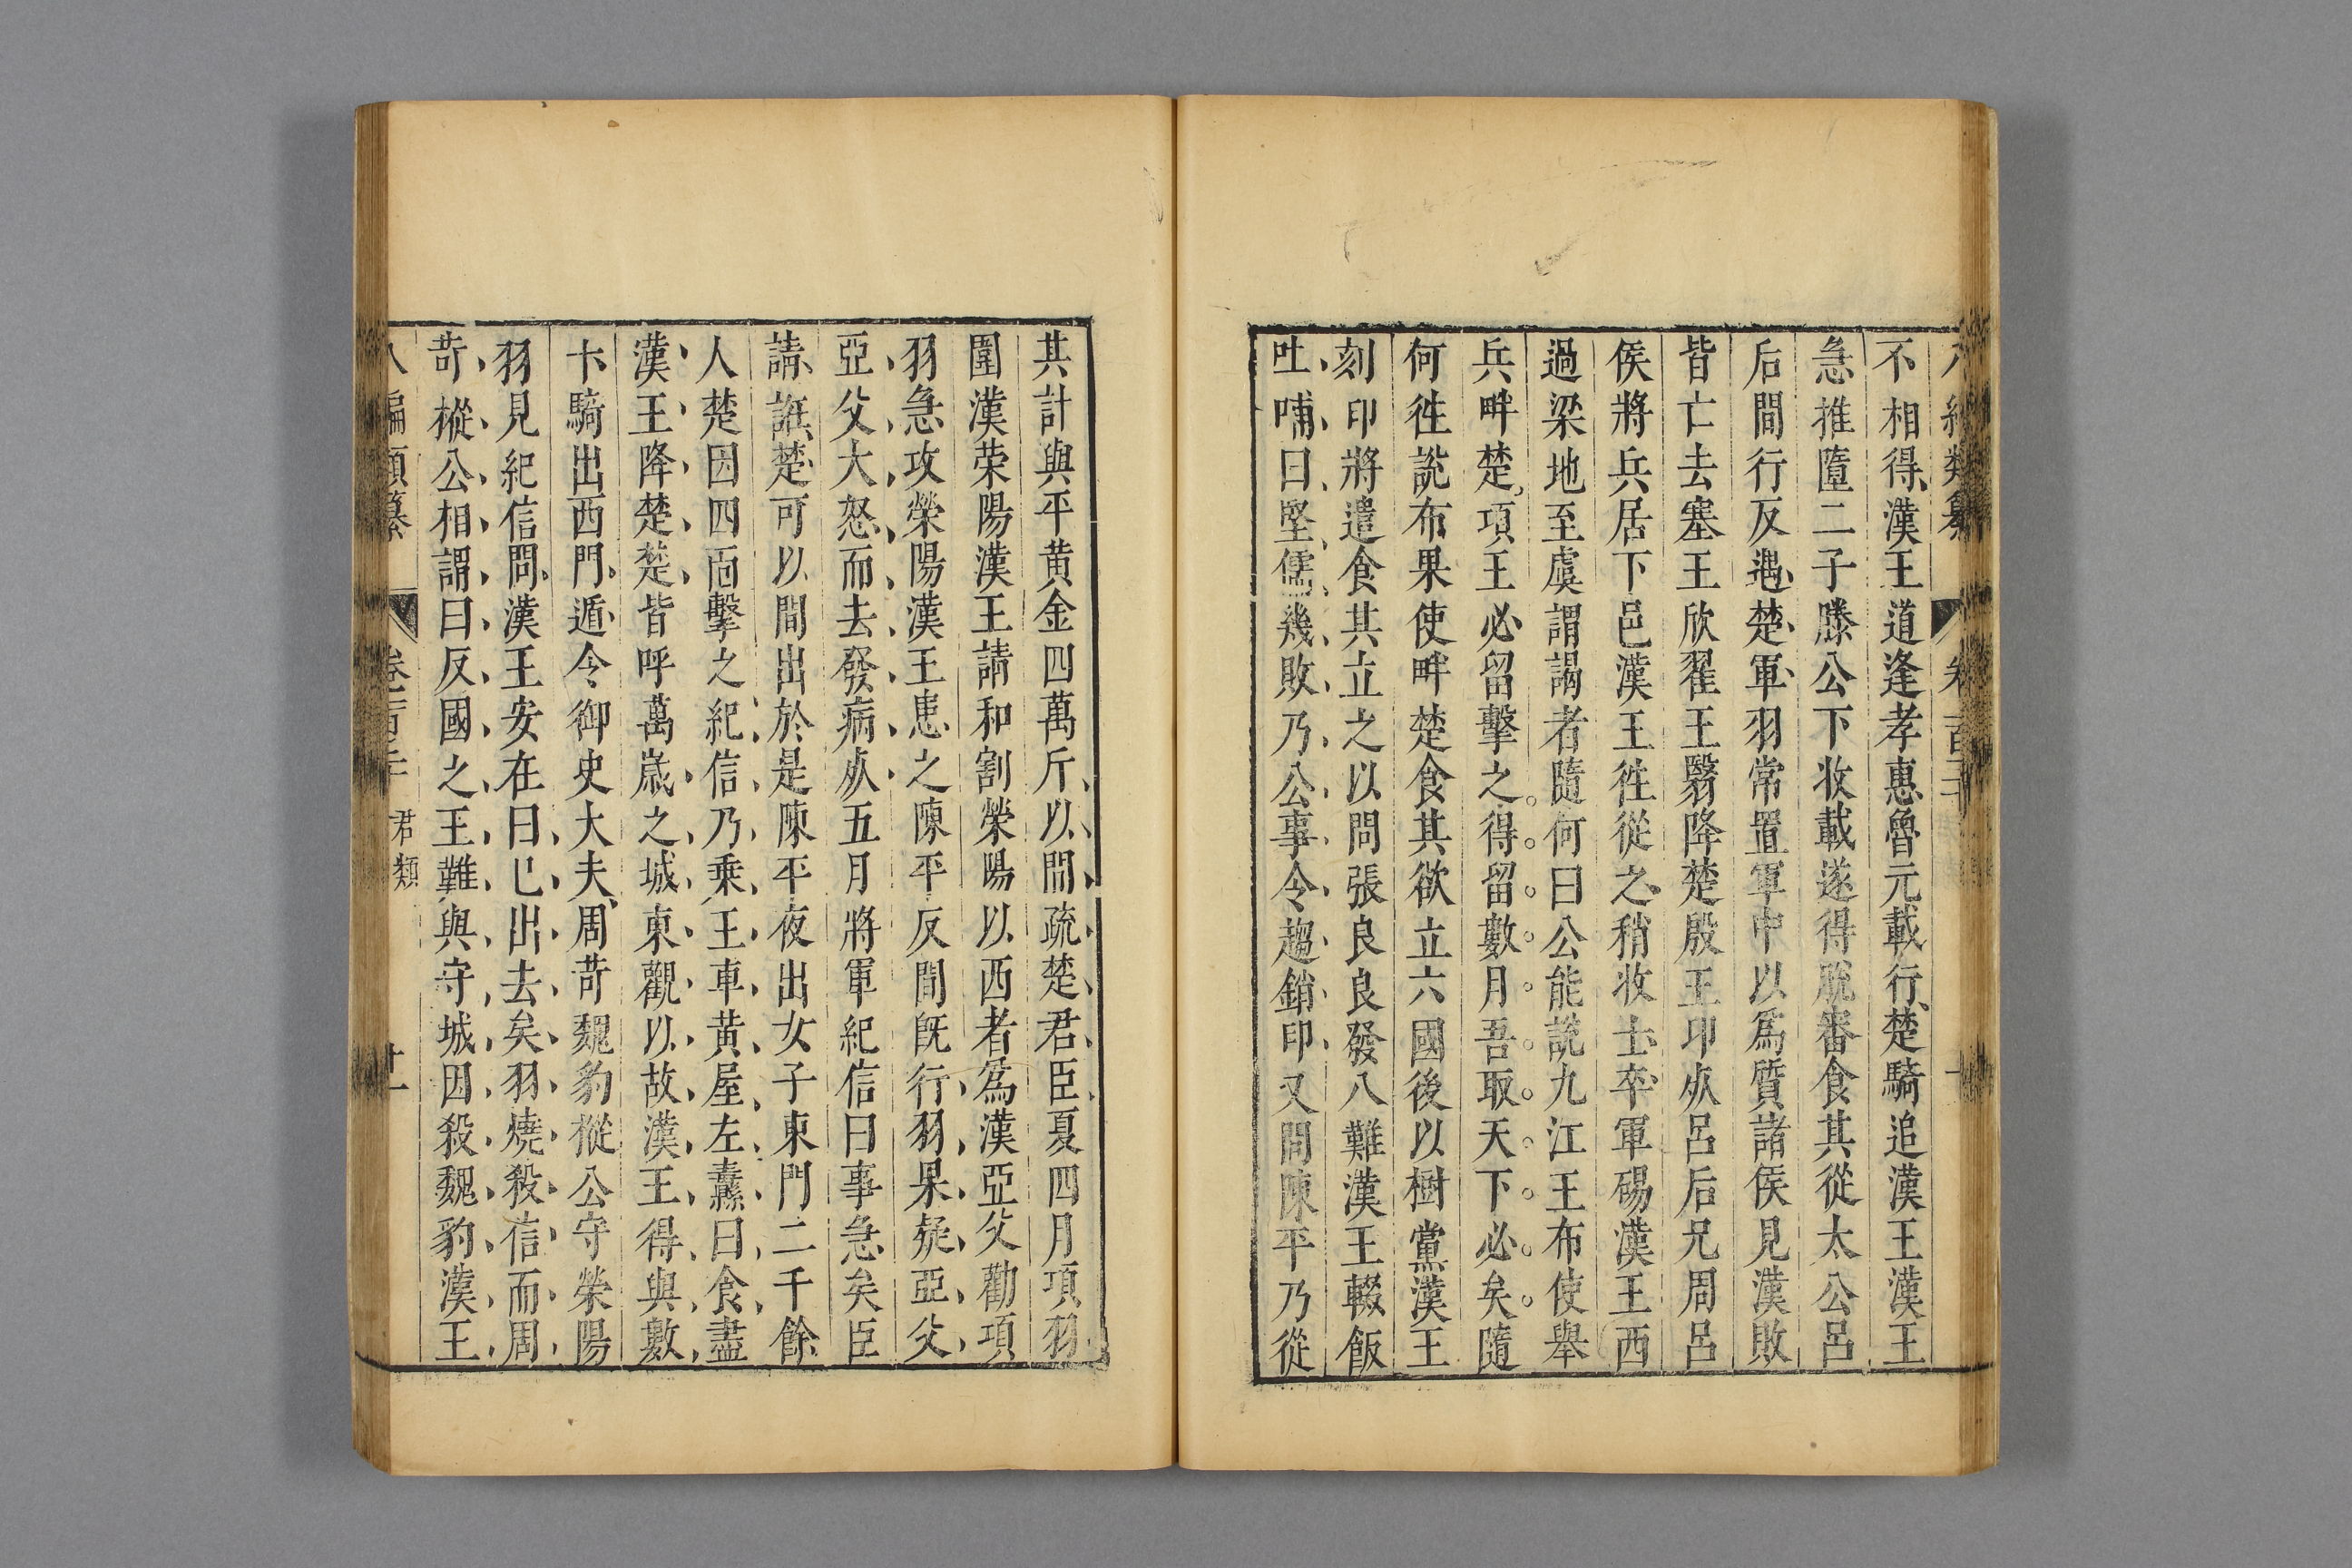 不相得漢王道逢孝惠魯元載行楚騎追漢王漢王
急推墮二子滕公下收載遂得脱審食其從太公呂
后間行反遇楚軍羽常置軍中以爲質諸侯見漢敗
皆亡去塞王欣翟王翳降楚殷王卬死呂后兄周呂
侯將兵居下邑漢王徃從之稍收士卒軍碭漢王西
過梁地至虞謂謁者隨何曰公能說九江王布使舉
兵畔楚項王必留擊之得留數月吾取天下必矣隨
何徃說布果使畔楚食其欲立六國後以樹黨漢王
刻印將遣食其立之以問張良良發八難漢王輟飯
吐哺曰竪儒幾敗乃公事令趨銷印又問陳平乃從
其計與平黄金四萬斤以間疏楚君臣夏四月項羽
圍漢荥陽漢王請和割榮陽以西者爲漢亞父勸項
羽急攻榮陽漢王患之陳平反間既行羽果疑亞父
亞父大怒而去發病死五月將軍紀信曰事急矣臣
請誑楚可以間出於是陳平夜出女子東門二千餘
人楚因四面擊之紀信乃乗王車黄屋左纛曰食盡
漢王降楚楚皆呼萬歲之城東觀以故漢王得與數
十騎出西門遁令御史大夫周苛魏豹樅公守榮陽
羽見紀信問漢王安在曰已出去矣羽燒殺信而周
苛樅公相謂曰反國之王難與守城因殺魏豹漢王
八編類纂 卷一百二十 君類 十一